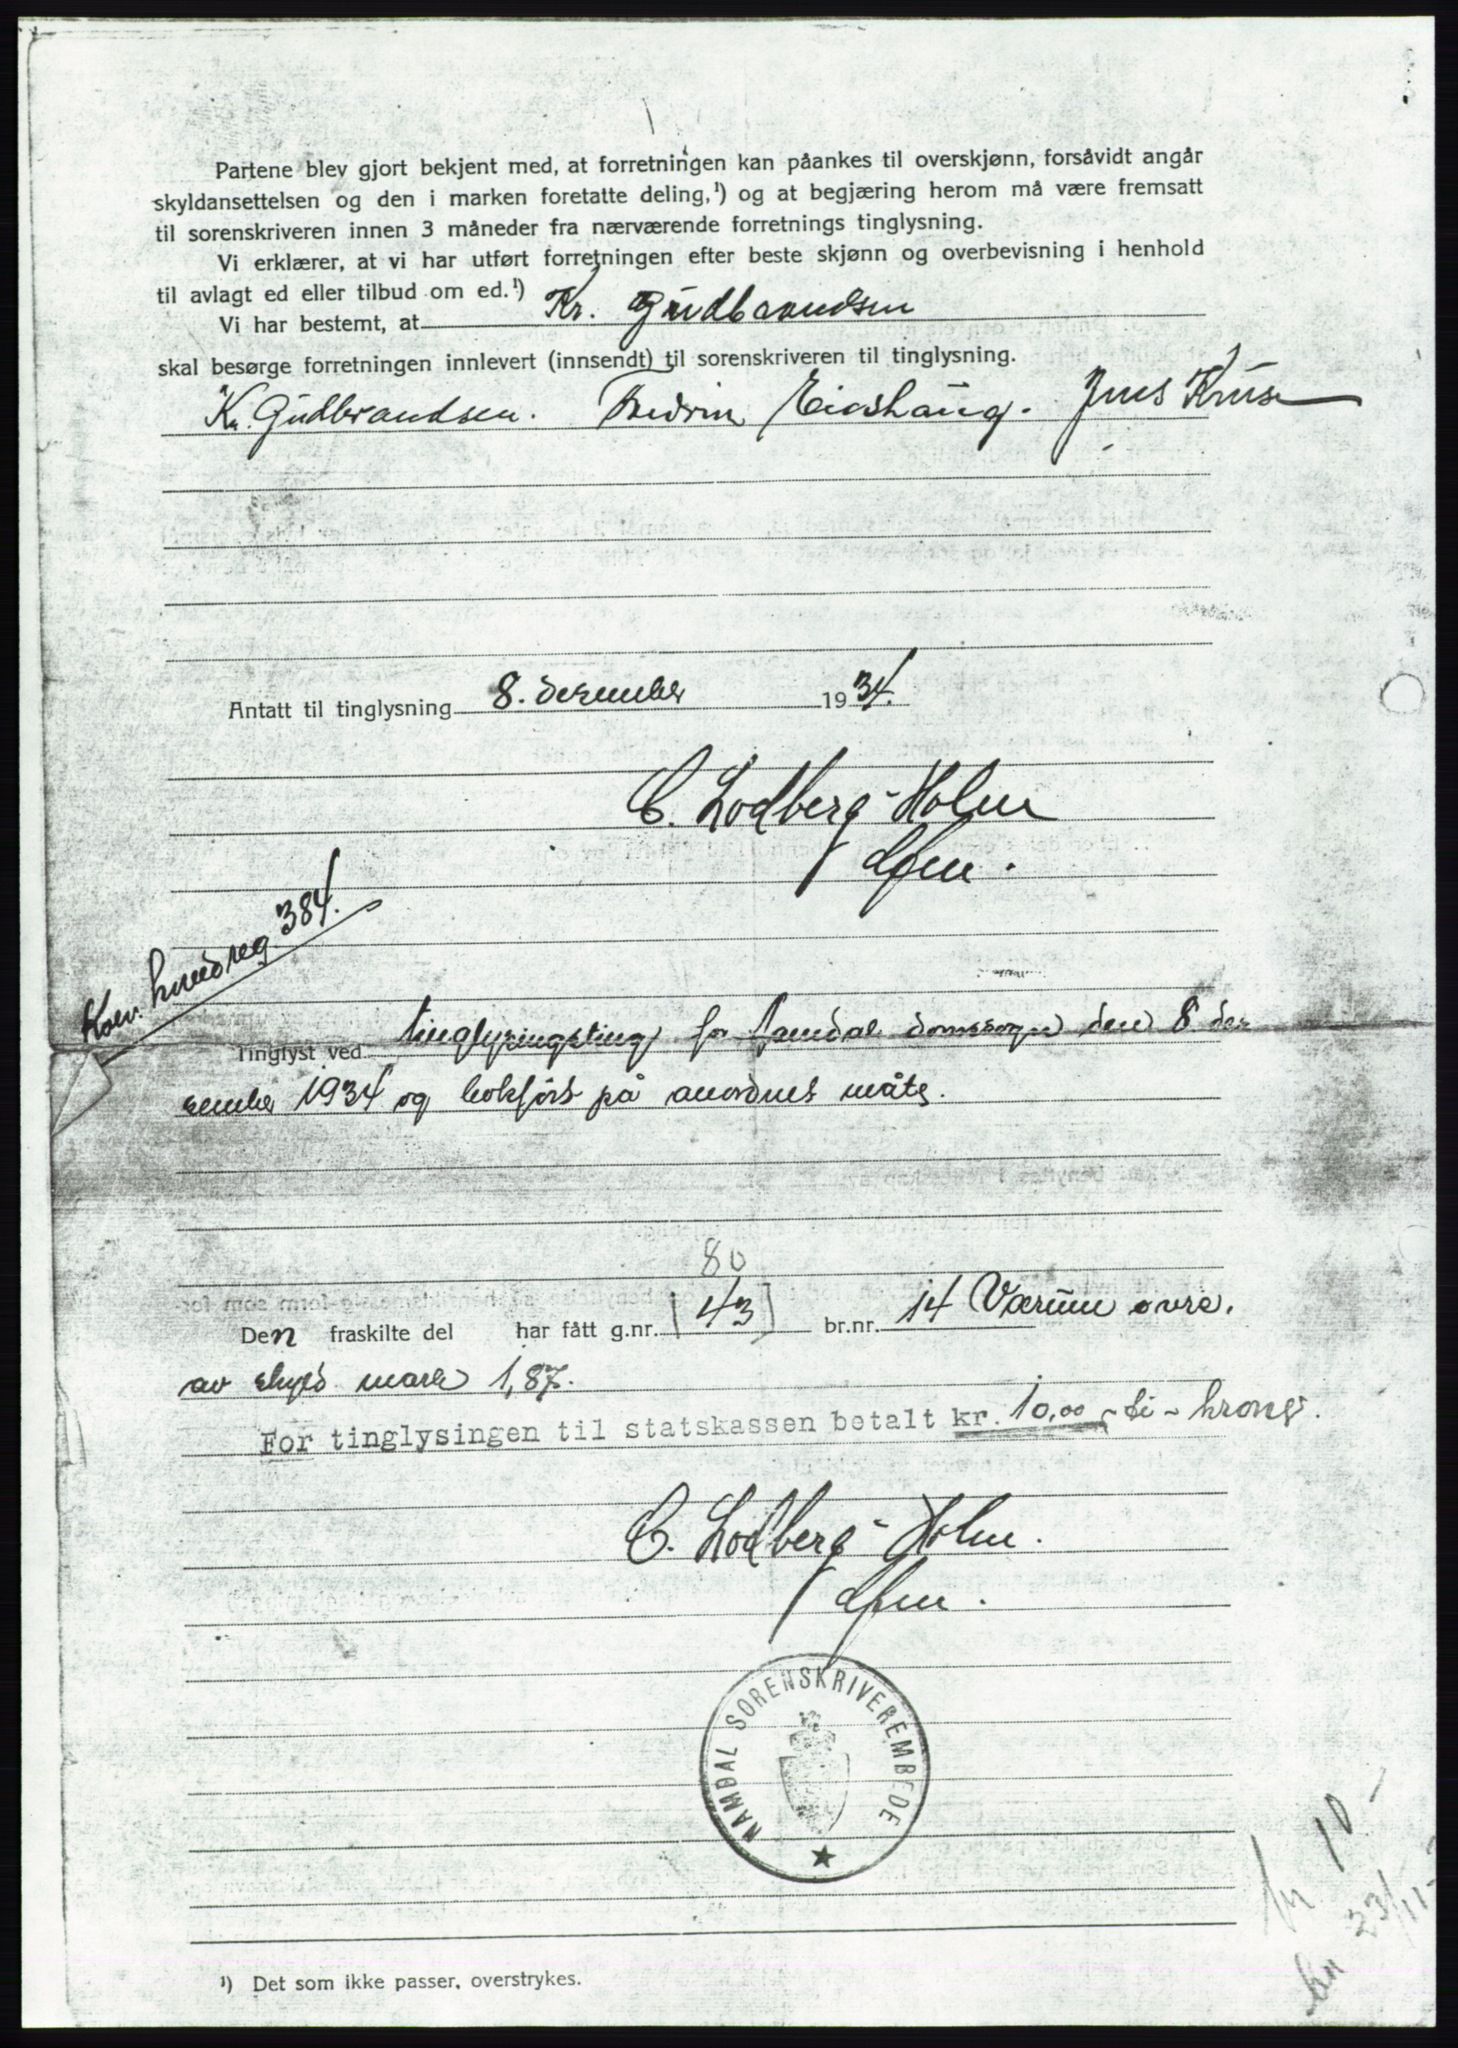 Partene blev gjort bekjent med, at forretningen kan påankes til overskjønn, forsåvidt angår
skyldansettelsen og den i marken foretatte deling,¹) og at begjæring herom må være fremsatt
til sorenskriveren innen 3 måneder fra nærværende forretnings tinglysning.
Vi erklærer, at vi har utført forretningen efter beste skjønn og overbevisning i henhold
til avlagt ed eller tilbud om ed.¹)
Vi har bestemt, at Kr. Gudbrandsen
skal besørge forretningen innlevert (innsendt) til sorenskriveren til tinglysning.
Kr. Gudbrandsen. Fredrin Eidshaug. Jens Kruse
Antatt til tinglysning 8. desember 1934.
C. Lodberg-Holm
384.
Tinglyst ved tinglysningsting for Namdal domssogn den 8. des
ember 1934 og bokført på anordnet måte.
80
Den fraskilte del har fått g.nr. [43] br.nr. 14 Værum øvre.
av skyld mark 1,87.
For tinglysingen til statskassen betalt kr. 10,00 - ti - kroner.
C. Lodberg-Holm.
NAMDAL SORENSKRIVEREMBEDE
kr 10 -
23/11-
¹) Det som ikke passer, overstrykes.